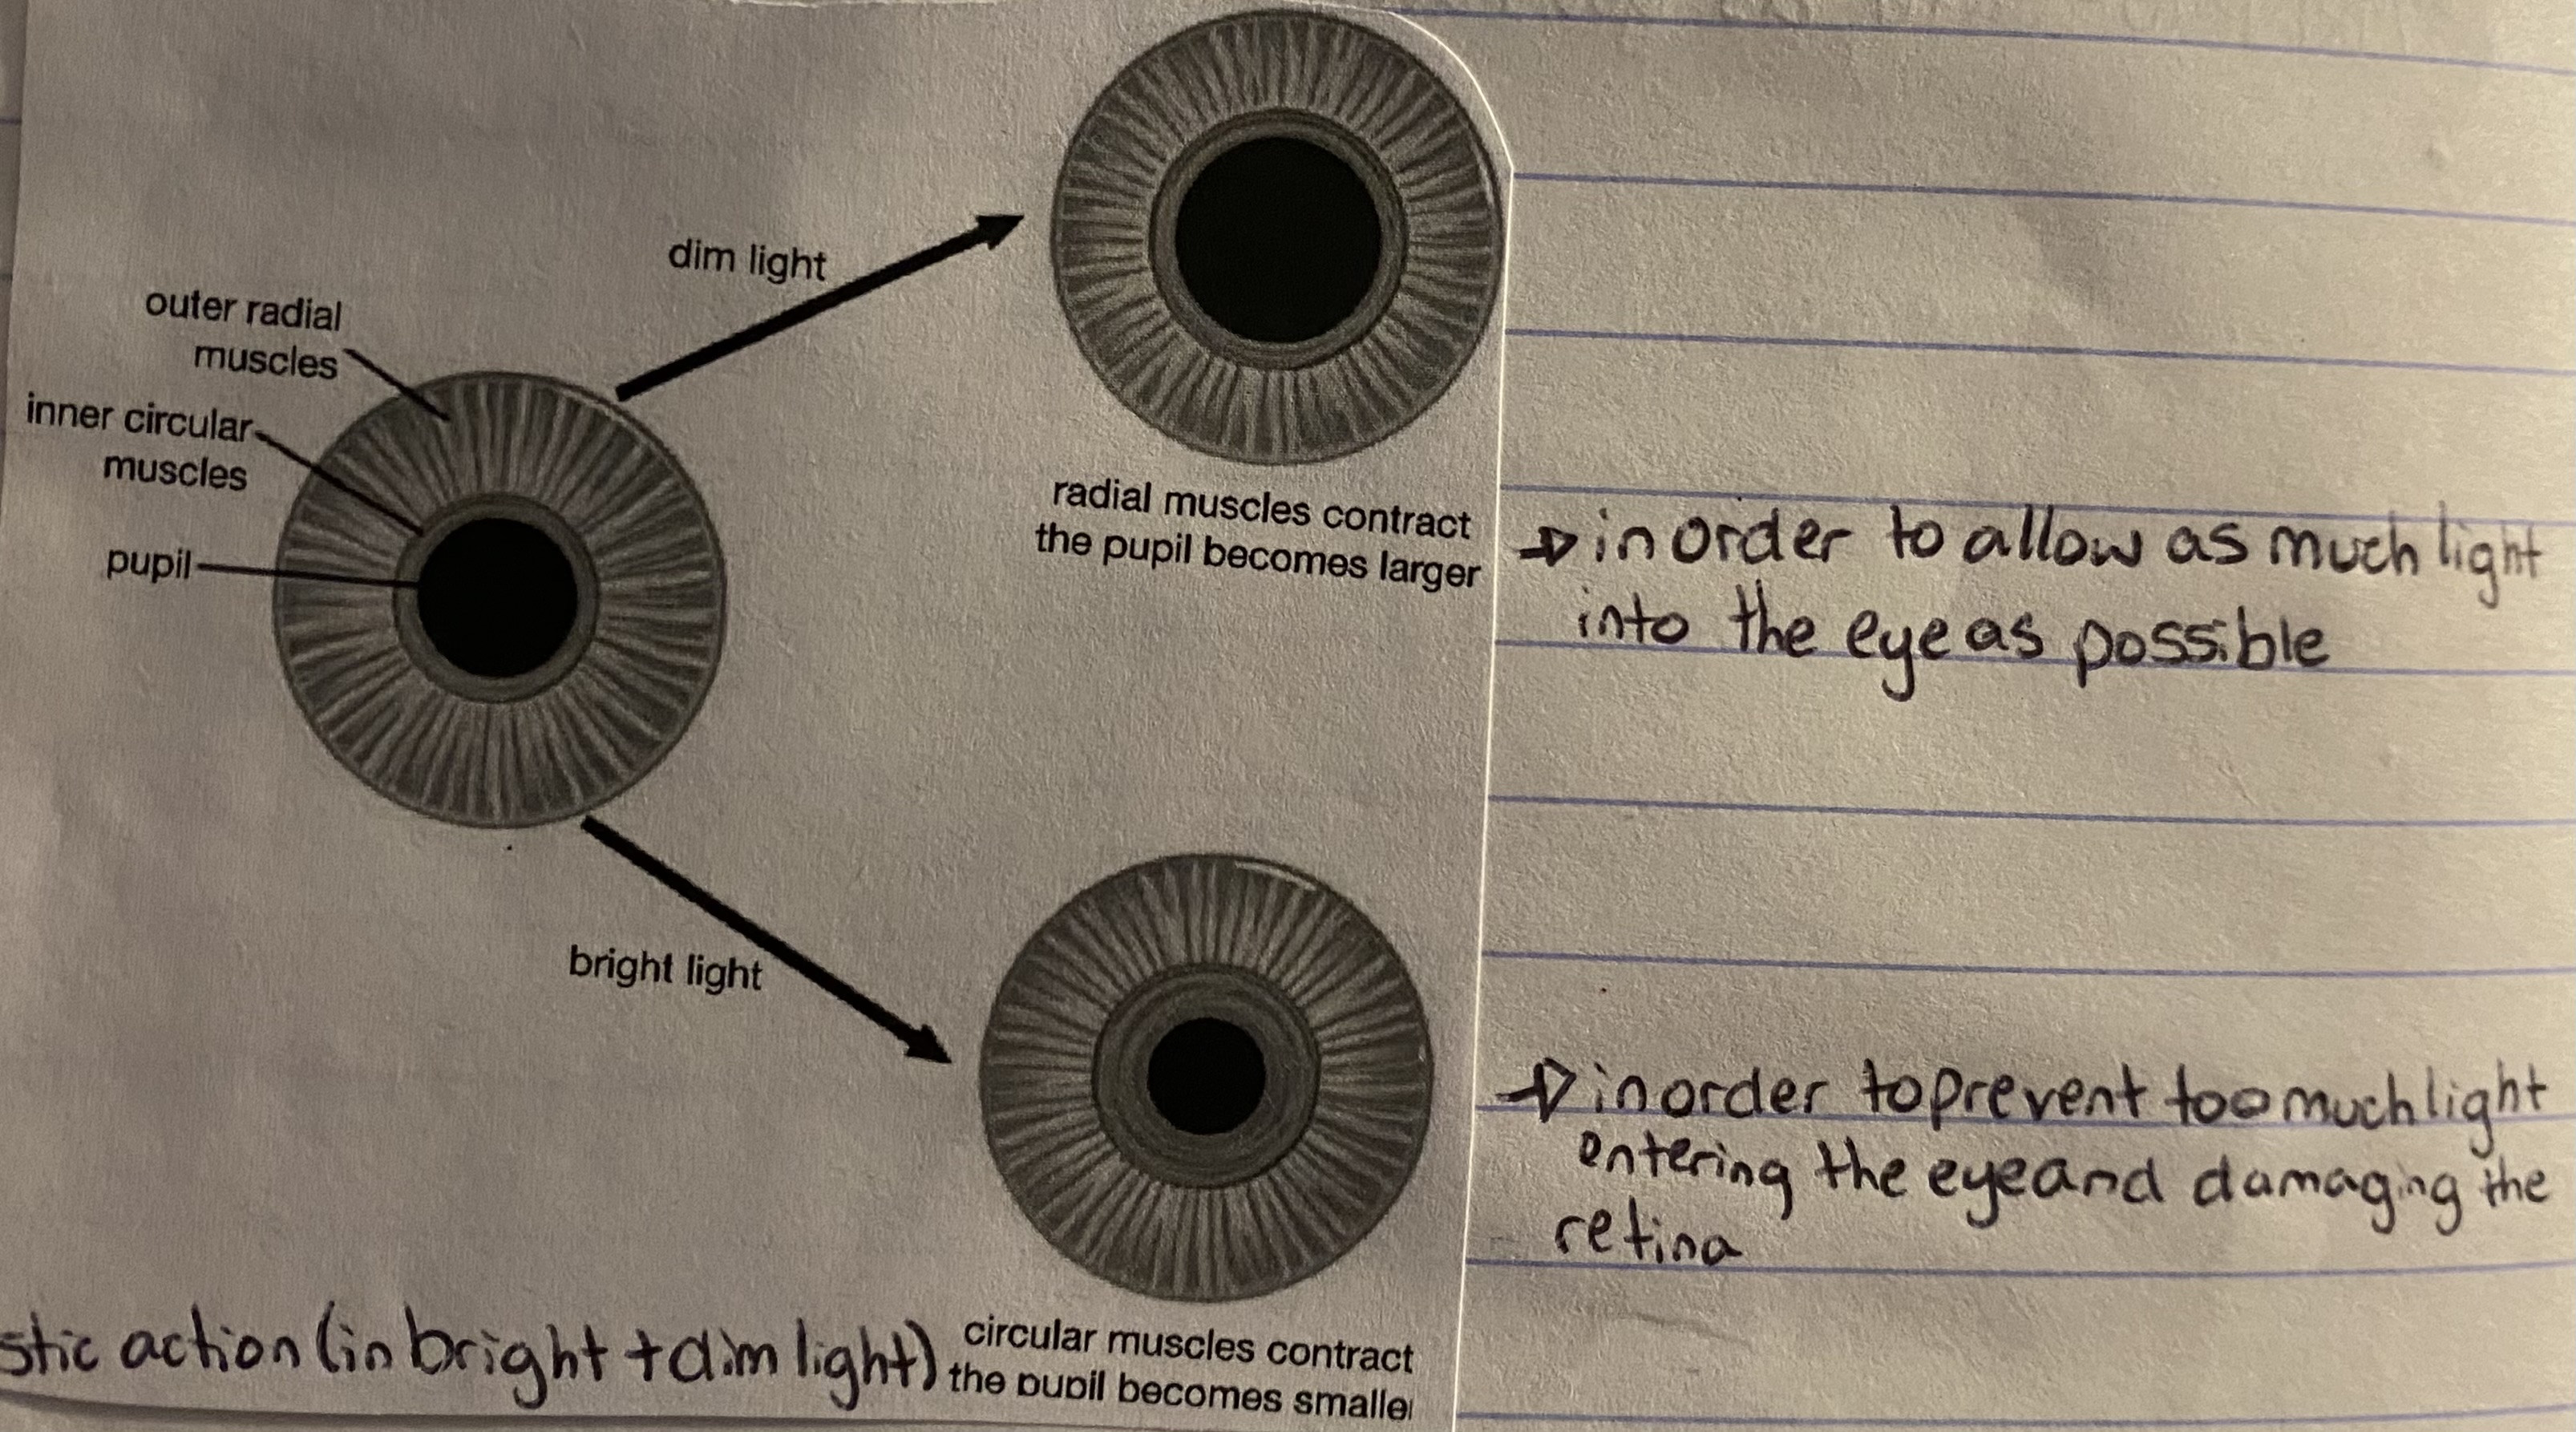 dim light
outer radial
muscles
inner circular
muscles
pupil
radial muscles contract
the pupil becomes larger
→ in order to allow as much light
into the eye as possible
bright light
→ in order to prevent too much light
entering the eye and damaging the
retina
stic action (in bright + dim light)
circular muscles contract
the pupil becomes smaller